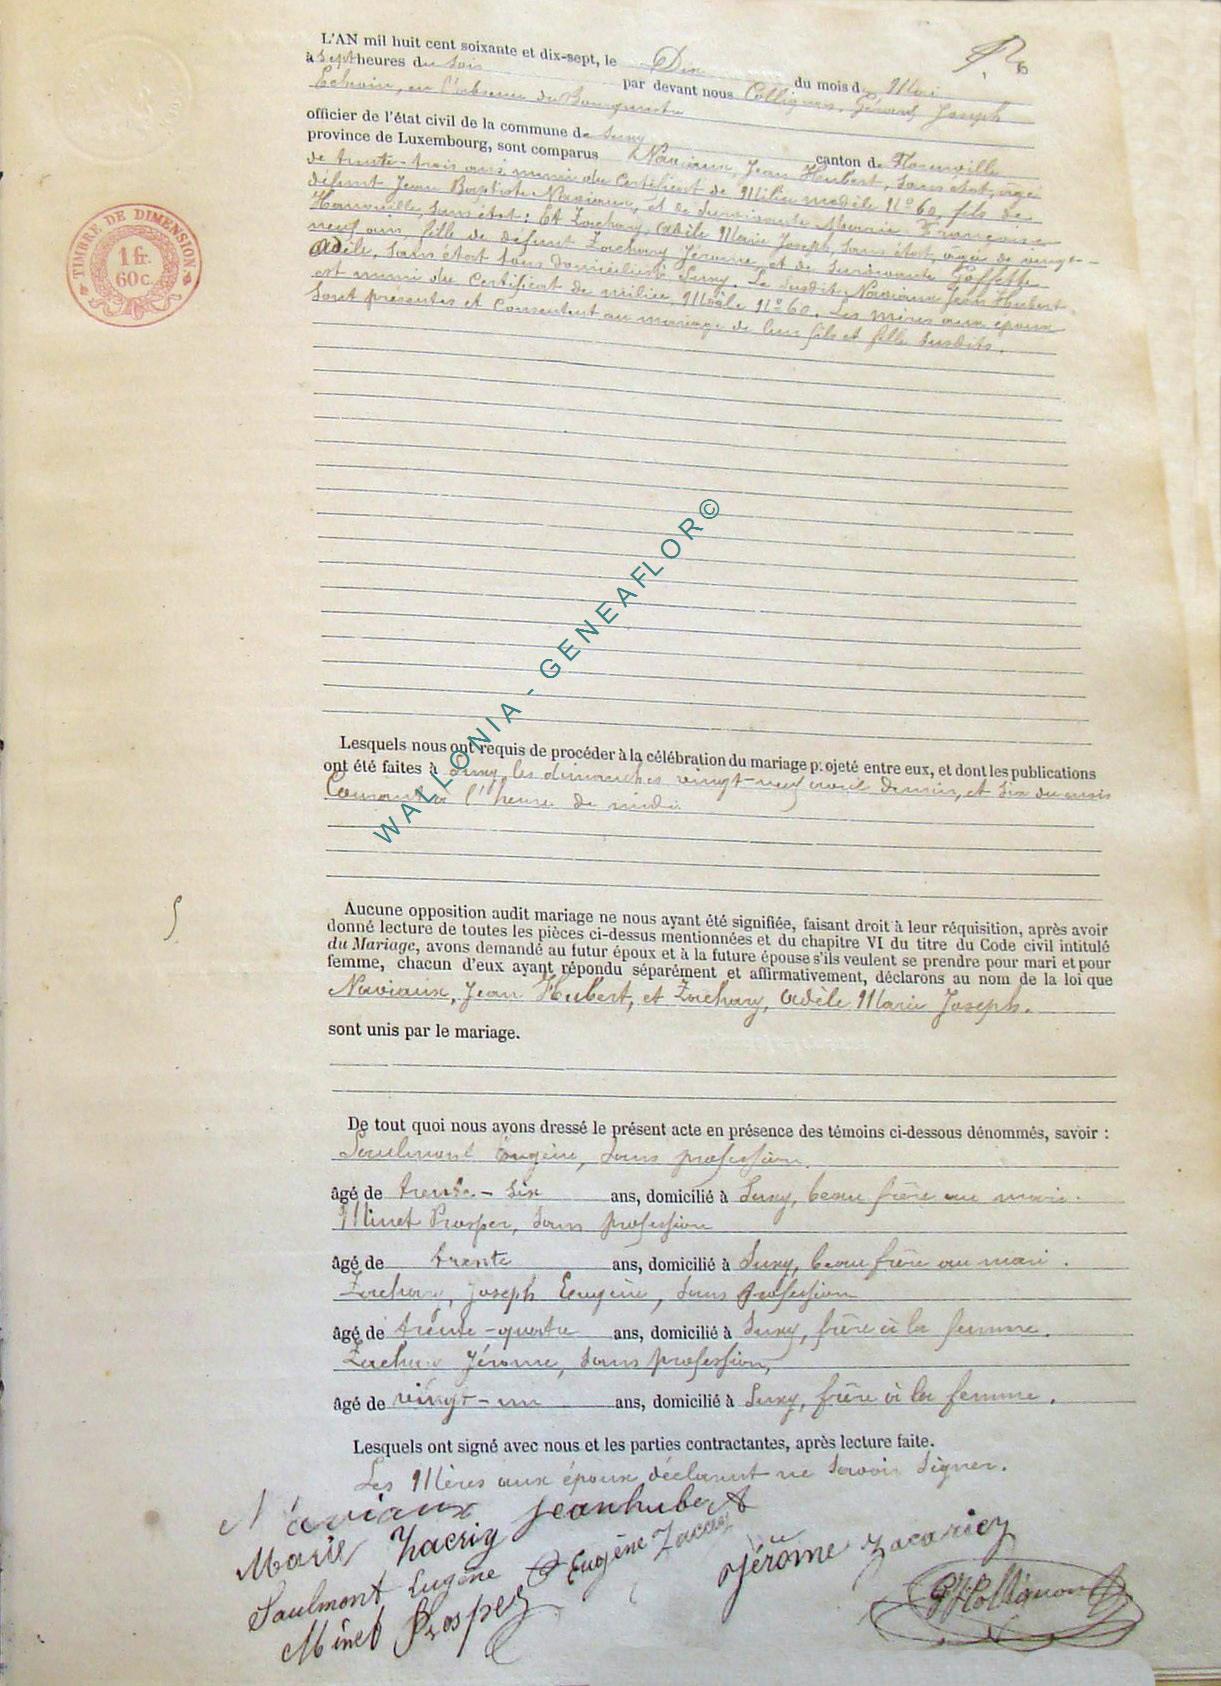 L'AN mil huit cent soixante et dix-sept, le Dix du mois de Mai
à sept heures du soir par devant nous Collignon, Gérard Joseph
Echevin, en l'absence du Bourgmestre
officier de l'état civil de la commune de Suxy canton de Florenville
province de Luxembourg, sont comparus Naviaux, Jean Hubert, sans état, âgé
de trente-trois ans, muni du Certificat de Milice modèle N° 60, fils de
défunt Jean Baptiste Naviaux, et de survivante Marie Françoise
sans état; Et Zachary, Adèle Marie Joseph, sans état, âgée de vingt-
neuf ans, fille de défunt Zachary Jérome, et de survivante Goffette
Adèle, sans état tous domiciliés à Suxy. Le susdit Naviaux Jean Hubert
est muni du Certificat de milice, Modèle N° 60. Les mères aux époux
sont présentes et Consentent au mariage de leur fils et fille susdits.
TIMBRE DE DIMENSION
1 fr.
60 c.
WALLONIA - GENEAFLOR©
Lesquels nous ont requis de procéder à la célébration du mariage projeté entre eux, et dont les publications
ont été faites à Suxy les dimanches vingt-neuf avril dernier, et six du mois
Courant à l'heure de midi
Aucune opposition audit mariage ne nous ayant été signifiée, faisant droit à leur réquisition, après avoir
donné lecture de toutes les pièces ci-dessus mentionnées et du chapitre VI du titre du Code civil intitulé
du Mariage, avons demandé au futur époux et à la future épouse s'ils veulent se prendre pour mari et pour
femme, chacun d'eux ayant répondu séparément et affirmativement, déclarons au nom de la loi que
Naviaux, Jean Hubert, et Zachary, Adèle Marie Joseph.
sont unis par le mariage.
De tout quoi nous avons dressé le présent acte en présence des témoins ci-dessous dénommés, savoir :
Saulmont Eugène, sans profession.
âgé de trente-six ans, domicilié à Suxy, beau frère au mari.
Minet Prosper, sans profession
âgé de trente ans, domicilié à Suxy, beau frère au mari.
Zachary, Joseph Eugène, sans profession
âgé de trente-quatre ans, domicilié à Suxy, frère à la femme.
Zachary Jérome, sans profession,
âgé de vingt-un ans, domicilié à Suxy, frère à la femme.
Lesquels ont signé avec nous et les parties contractantes, après lecture faite.
Les Mères aux époux déclarent ne savoir signer.
Naviaux jeanhubert
Marie Zacriy
Saulmont Eugène Eugène Zaccary jérôme zacariey
Minet Prosper GJCollignon